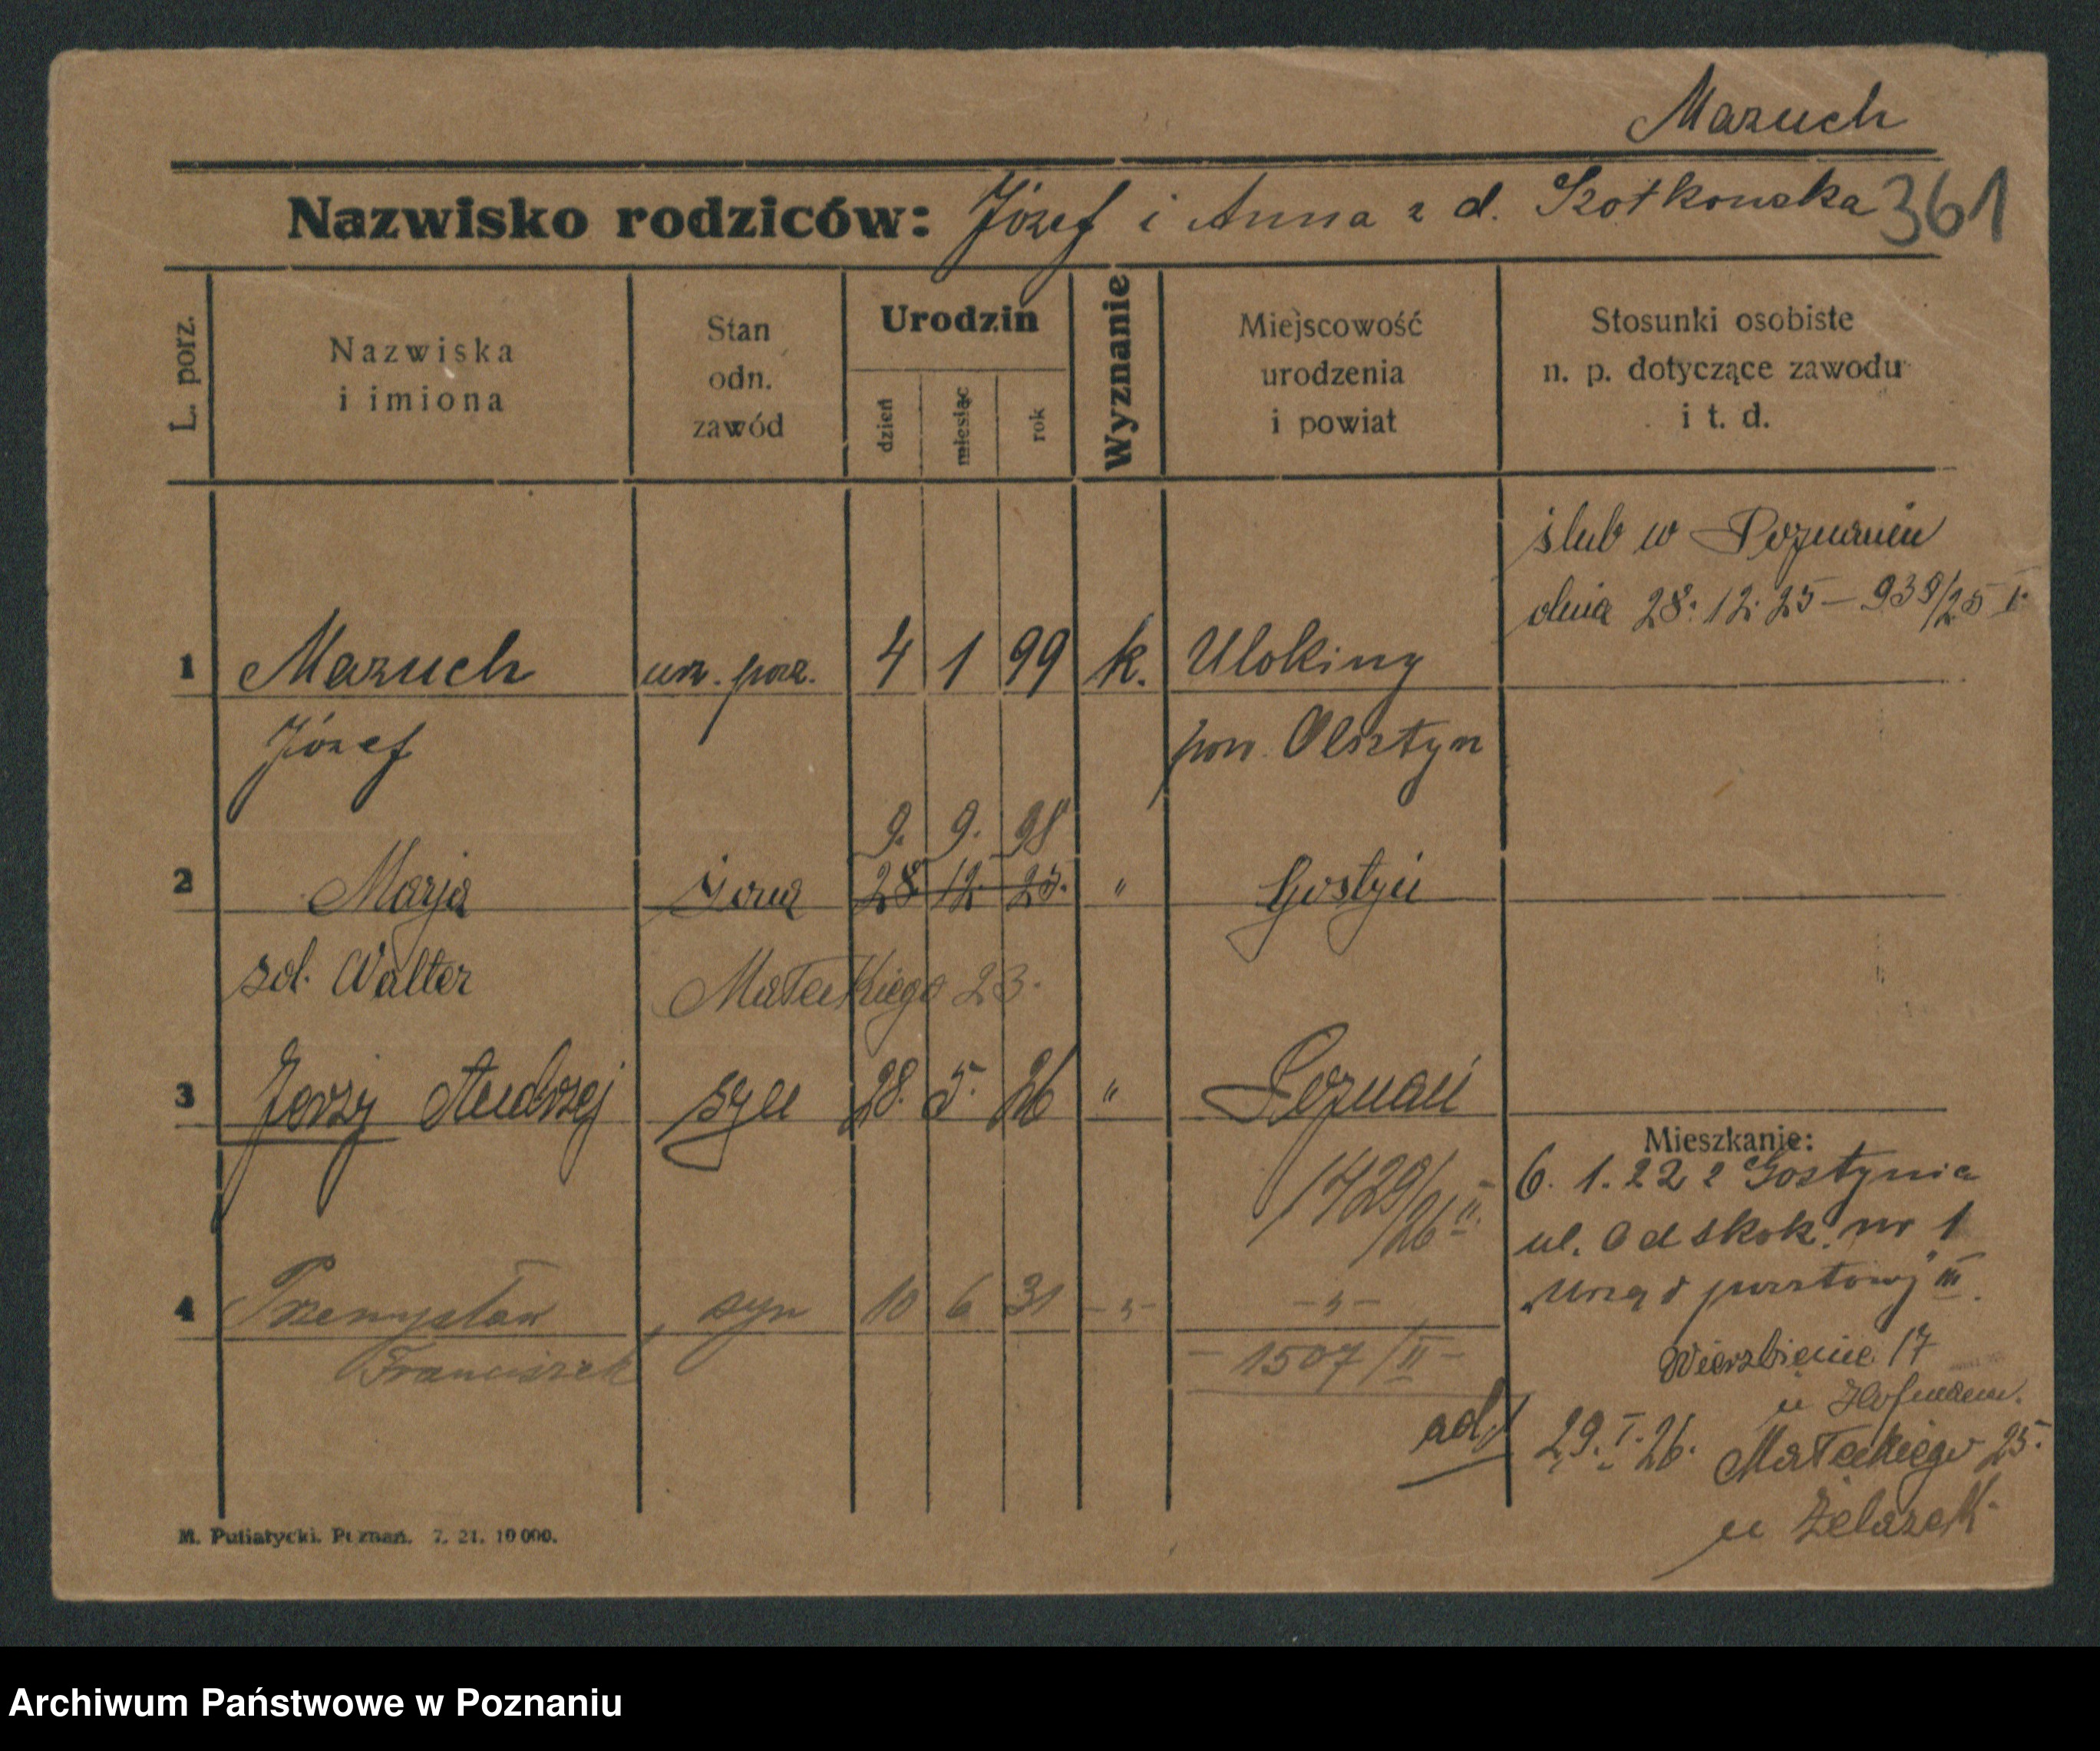 Mazuch
Nazwisko rodziców: Józef i Anna z d. Szotkowska 361
L. porz.
Nazwiska
i imiona
Stan
odn.
zawód
Urodzin
dzień
miesiąc
rok
Wyznanie
Miejscowość
urodzenia
i powiat
Stosunki osobiste
n. p. dotyczące zawodu
i t. d.
ślub w Poznaniu
dnia 28.12.25 – 939/25 I.
1 Mazuch urz. 4 1 99 k. Wloking
Józef pow. Olsztyn
9. 9. 98
2 Marja żona 28 12. 25. " Gostyń
zd. Walter Małeckiego 23.
3 Jerzy Andrzej syn 28. 5. 26 " Poznań
1429/26 II.
Mieszkanie:
6. 1. 22 z Gostynia
ul. Odskok. nr 1
"Urząd pocztowy" III.
4 Przemysław syn 10 6 31 – " – – " –
Franciszek – 1507/II –
Wierzbięcice 17
u Hofmann.
ad/ 29. I. 26. Małeckiego 25.
u Żelazek
M. Putiatycki. Poznań. 7. 21. 10 000.
Archiwum Państwowe w Poznaniu